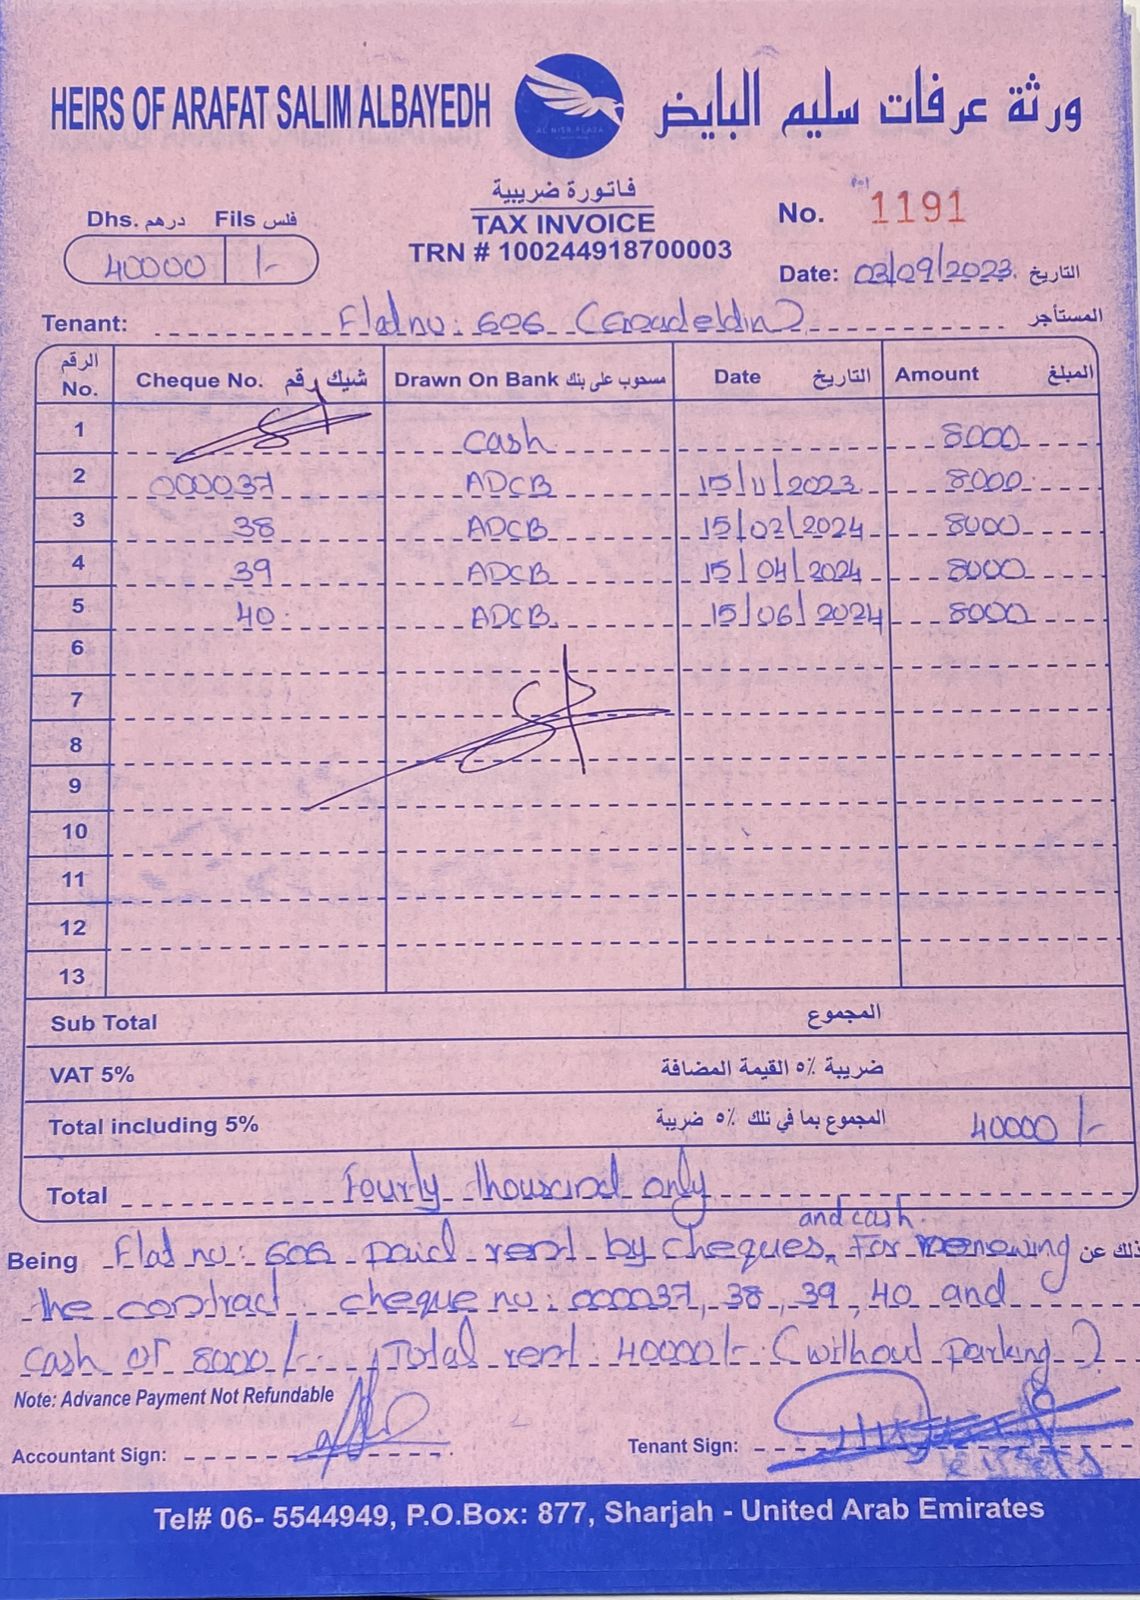 HEIRS OF ARAFAT SALIM ALBAYEDH
AL NISR PLAZA
ورثة عرفات سليم البايض
فاتورة ضريبية
TAX INVOICE
TRN # 100244918700003
Dhs. درهم Fils فلس
40000 /-
No. 1191
Date: 03/09/2023 التاريخ
Tenant: Flat no: 606 المستأجر
الرقم No. Cheque No. شيك رقم Drawn On Bank مسحوب على بنك Date التاريخ Amount المبلغ
1 cash 8000
2 000037 ADCB 15/11/2023 8000
3 38 ADCB 15/02/2024 8000
4 39 ADCB 15/04/2024 8000
5 40 ADCB 15/06/2024 8000
6
7
8
9
10
11
12
13
Sub Total المجموع
VAT 5% ضريبة ٥٪ القيمة المضافة
Total including 5% المجموع بما في تلك ٥٪ ضريبة 40000 /-
Total Fourty thousand only
and cash
Being Flat no: 606 paid rent by cheques, For renewing ذلك عن
the contract cheque no: 000037, 38, 39, 40 and
cash of 8000/- Total rent 40000/- (without parking)
Note: Advance Payment Not Refundable
Accountant Sign:
Tenant Sign:
Tel# 06- 5544949, P.O.Box: 877, Sharjah - United Arab Emirates